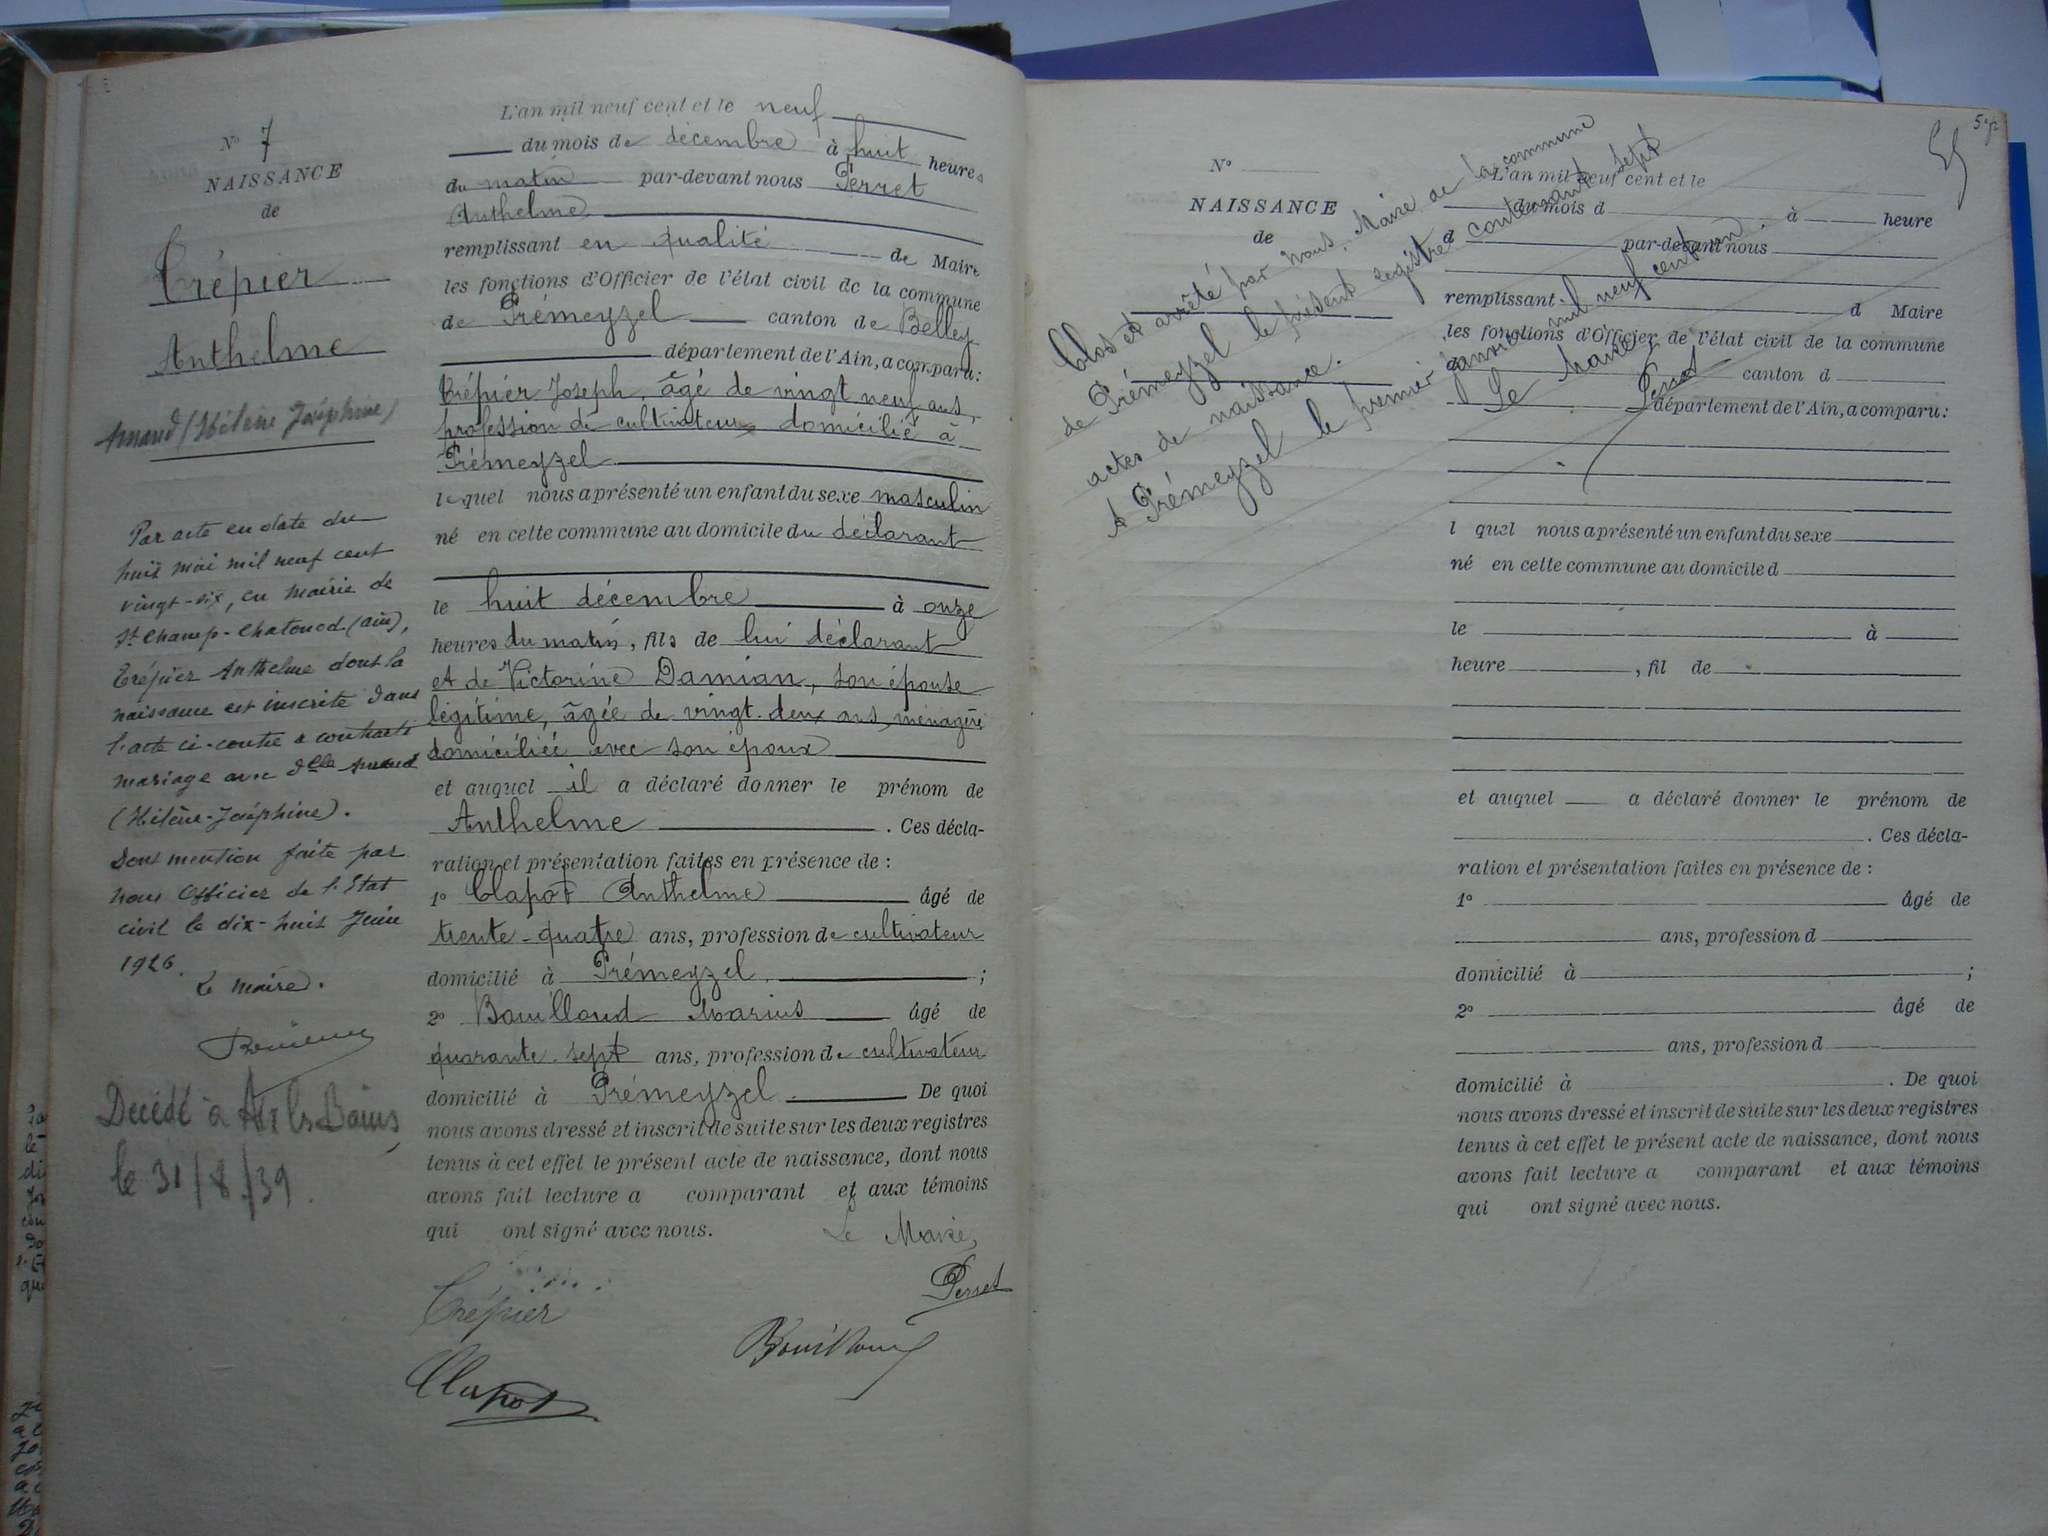 N° 7
NAISSANCE
de
Trépier
Anthelme
Arnaud (Hélène Joséphine)
Par acte en date du
huit mai mil neuf cent
vingt-six, en mairie de
St Champ-Chatonod (ain),
Trépier Anthelme dont la
naissance est inscrite dans
l'acte ci-contre a contracté
mariage avec Delle Arnaud
(Hélène-Joséphine).
Dont mention faite par
nous Officier de l'Etat
civil le dix-huit Juin
1926.
Le maire.
Décédé à Aix les Bains,
le 31/8/39.
L'an mil neuf cent et le neuf
du mois de décembre à huit heures
du matin par-devant nous Perret
Anthelme
remplissant en qualité de Maire
les fonctions d'Officier de l'état civil de la commune
de Prémeyzel canton de Belley
département de l'Ain, a comparu:
Trépier Joseph, âgé de vingt neuf ans,
profession de cultivateur domicilié à
Prémeyzel
lequel nous a présenté un enfant du sexe masculin
né en cette commune au domicile du déclarant
le huit décembre à onze
heures du matin, fils de lui déclarant
et de Victorine Damian, son épouse
légitime, âgée de vingt-deux ans, ménagère
domiciliée avec son époux
et auquel il a déclaré donner le prénom de
Anthelme . Ces décla-
ration et présentation faites en présence de :
1° Clapot Anthelme âgé de
trente-quatre ans, profession de cultivateur
domicilié à Prémeyzel ;
2° Bouilloud Marius âgé de
quarante-sept ans, profession de cultivateur
domicilié à Prémeyzel. De quoi
nous avons dressé et inscrit de suite sur les deux registres
tenus à cet effet le présent acte de naissance, dont nous
avons fait lecture a comparant et aux témoins
qui ont signé avec nous. Le Maire,
Perret
Trépier
Bouilloud
Clapot
55
N°
NAISSANCE
de
Clos et arrêté par nous, Maire de la commune
de Prémeyzel le présent registre contenant sept
actes de naissance.
A Prémeyzel le premier janvier mil neuf cent un.
Le Maire,
Perret
L'an mil neuf cent et le
du mois d à heure
d par-devant nous
remplissant d Maire
les fonctions d'Officier de l'état civil de la commune
d canton d
département de l'Ain, a comparu:
l quel nous a présenté un enfant du sexe
né en cette commune au domicile d
le à
heure , fil de
et auquel a déclaré donner le prénom de
. Ces décla-
ration et présentation faites en présence de :
1° âgé de
ans, profession d
domicilié à ;
2° âgé de
ans, profession d
domicilié à . De quoi
nous avons dressé et inscrit de suite sur les deux registres
tenus à cet effet le présent acte de naissance, dont nous
avons fait lecture a comparant et aux témoins
qui ont signé avec nous.